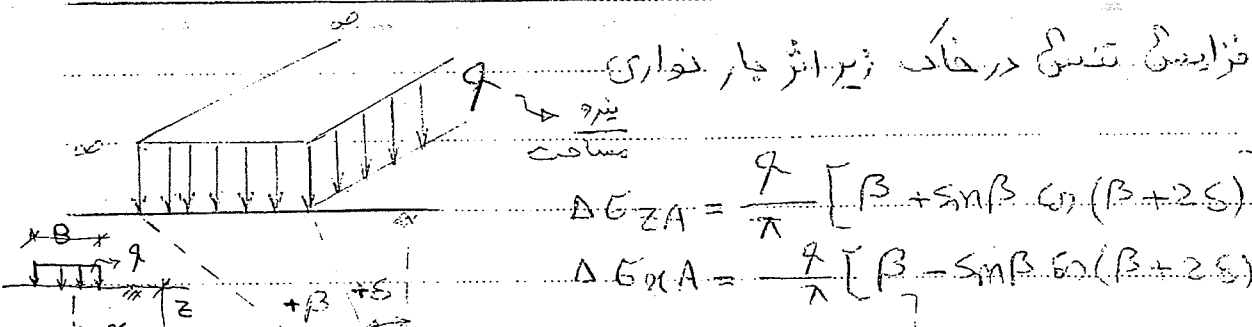 فزایش تنش در خاک زیر اثر بار نواری
∞
∞
q
نیرو
مساحت
Δσ_zA = q/π [β + sinβ cos(β+2δ)
Δσ_xA = q/π [β - sinβ cos(β+2δ)
B
q
z
+β +δ
x